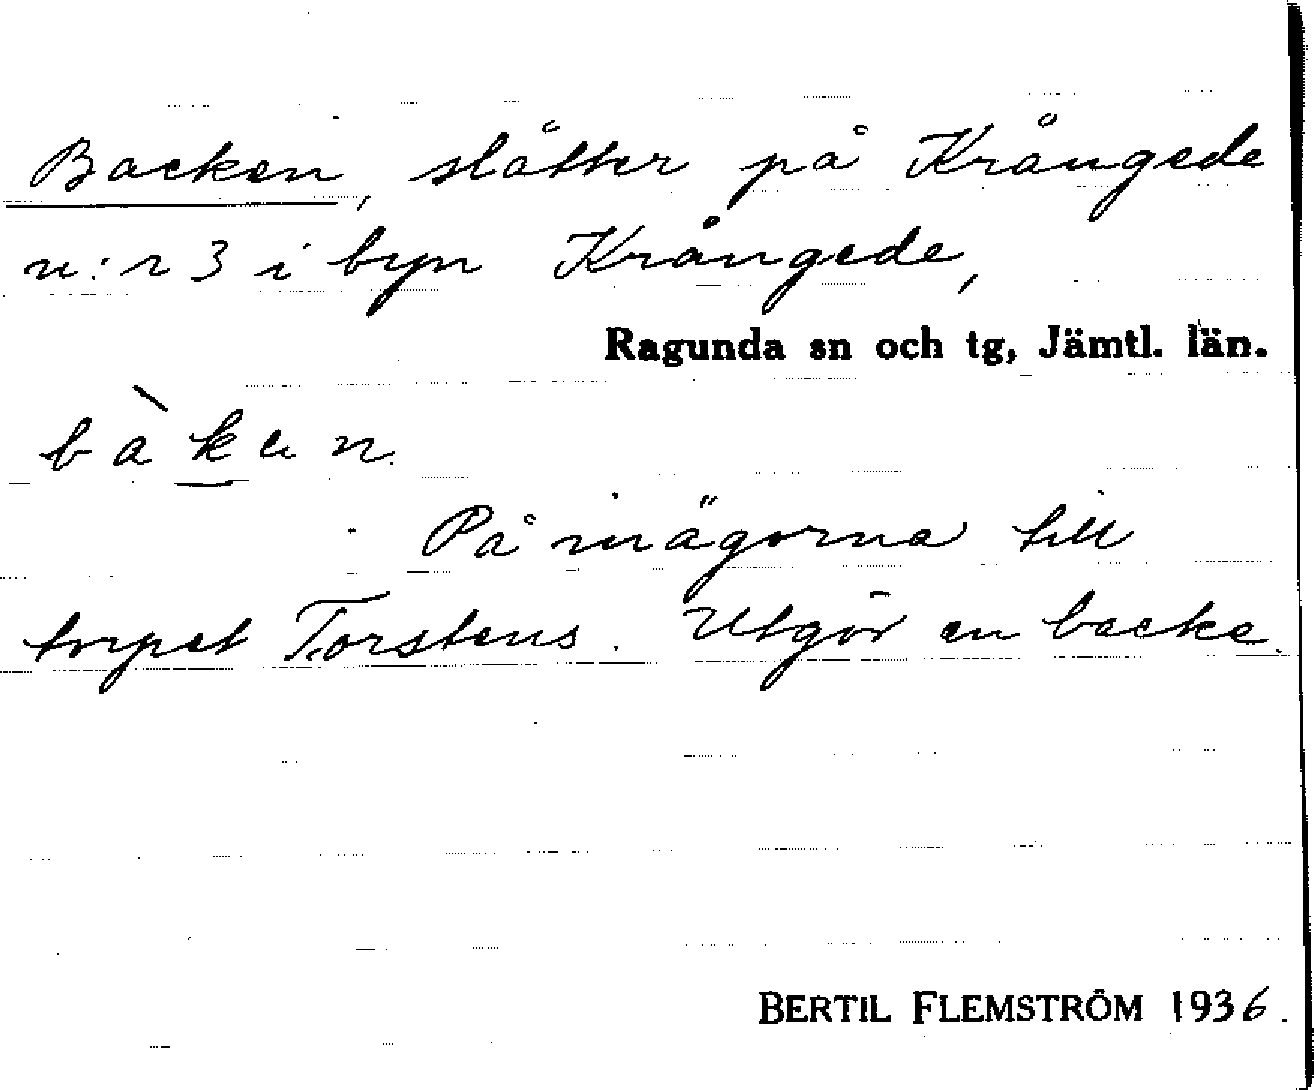 Backen, slåtter på Krångede
n:r 3 i byn Krångede,
Ragunda sn och tg, Jämtl. län.
bàken.
På inägorna till
torpet Torstens. Utgör en backe.
BERTIL FLEMSTRÖM 1936.